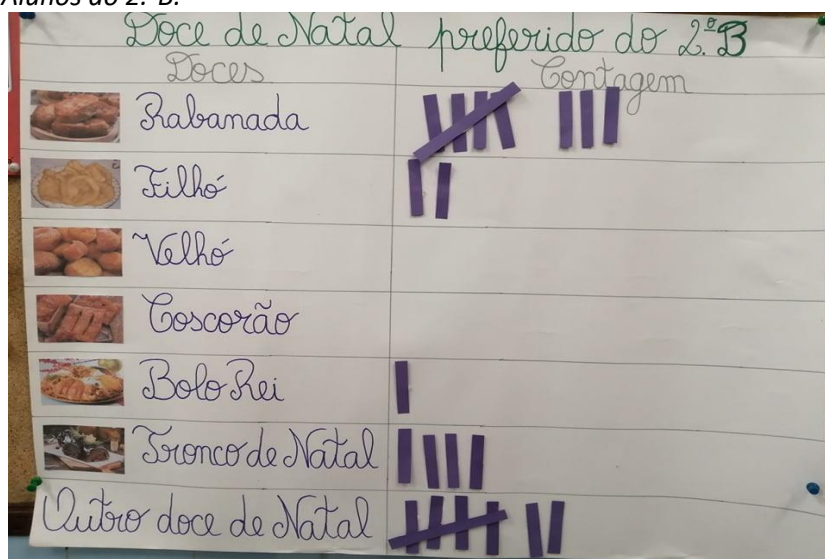 Alunos do 2.º B.
Doce de Natal preferido do 2.º B
Doces Contagem
Rabanada
Filhó
Velhó
Coscorão
Bolo Rei
Tronco de Natal
Outro doce de Natal